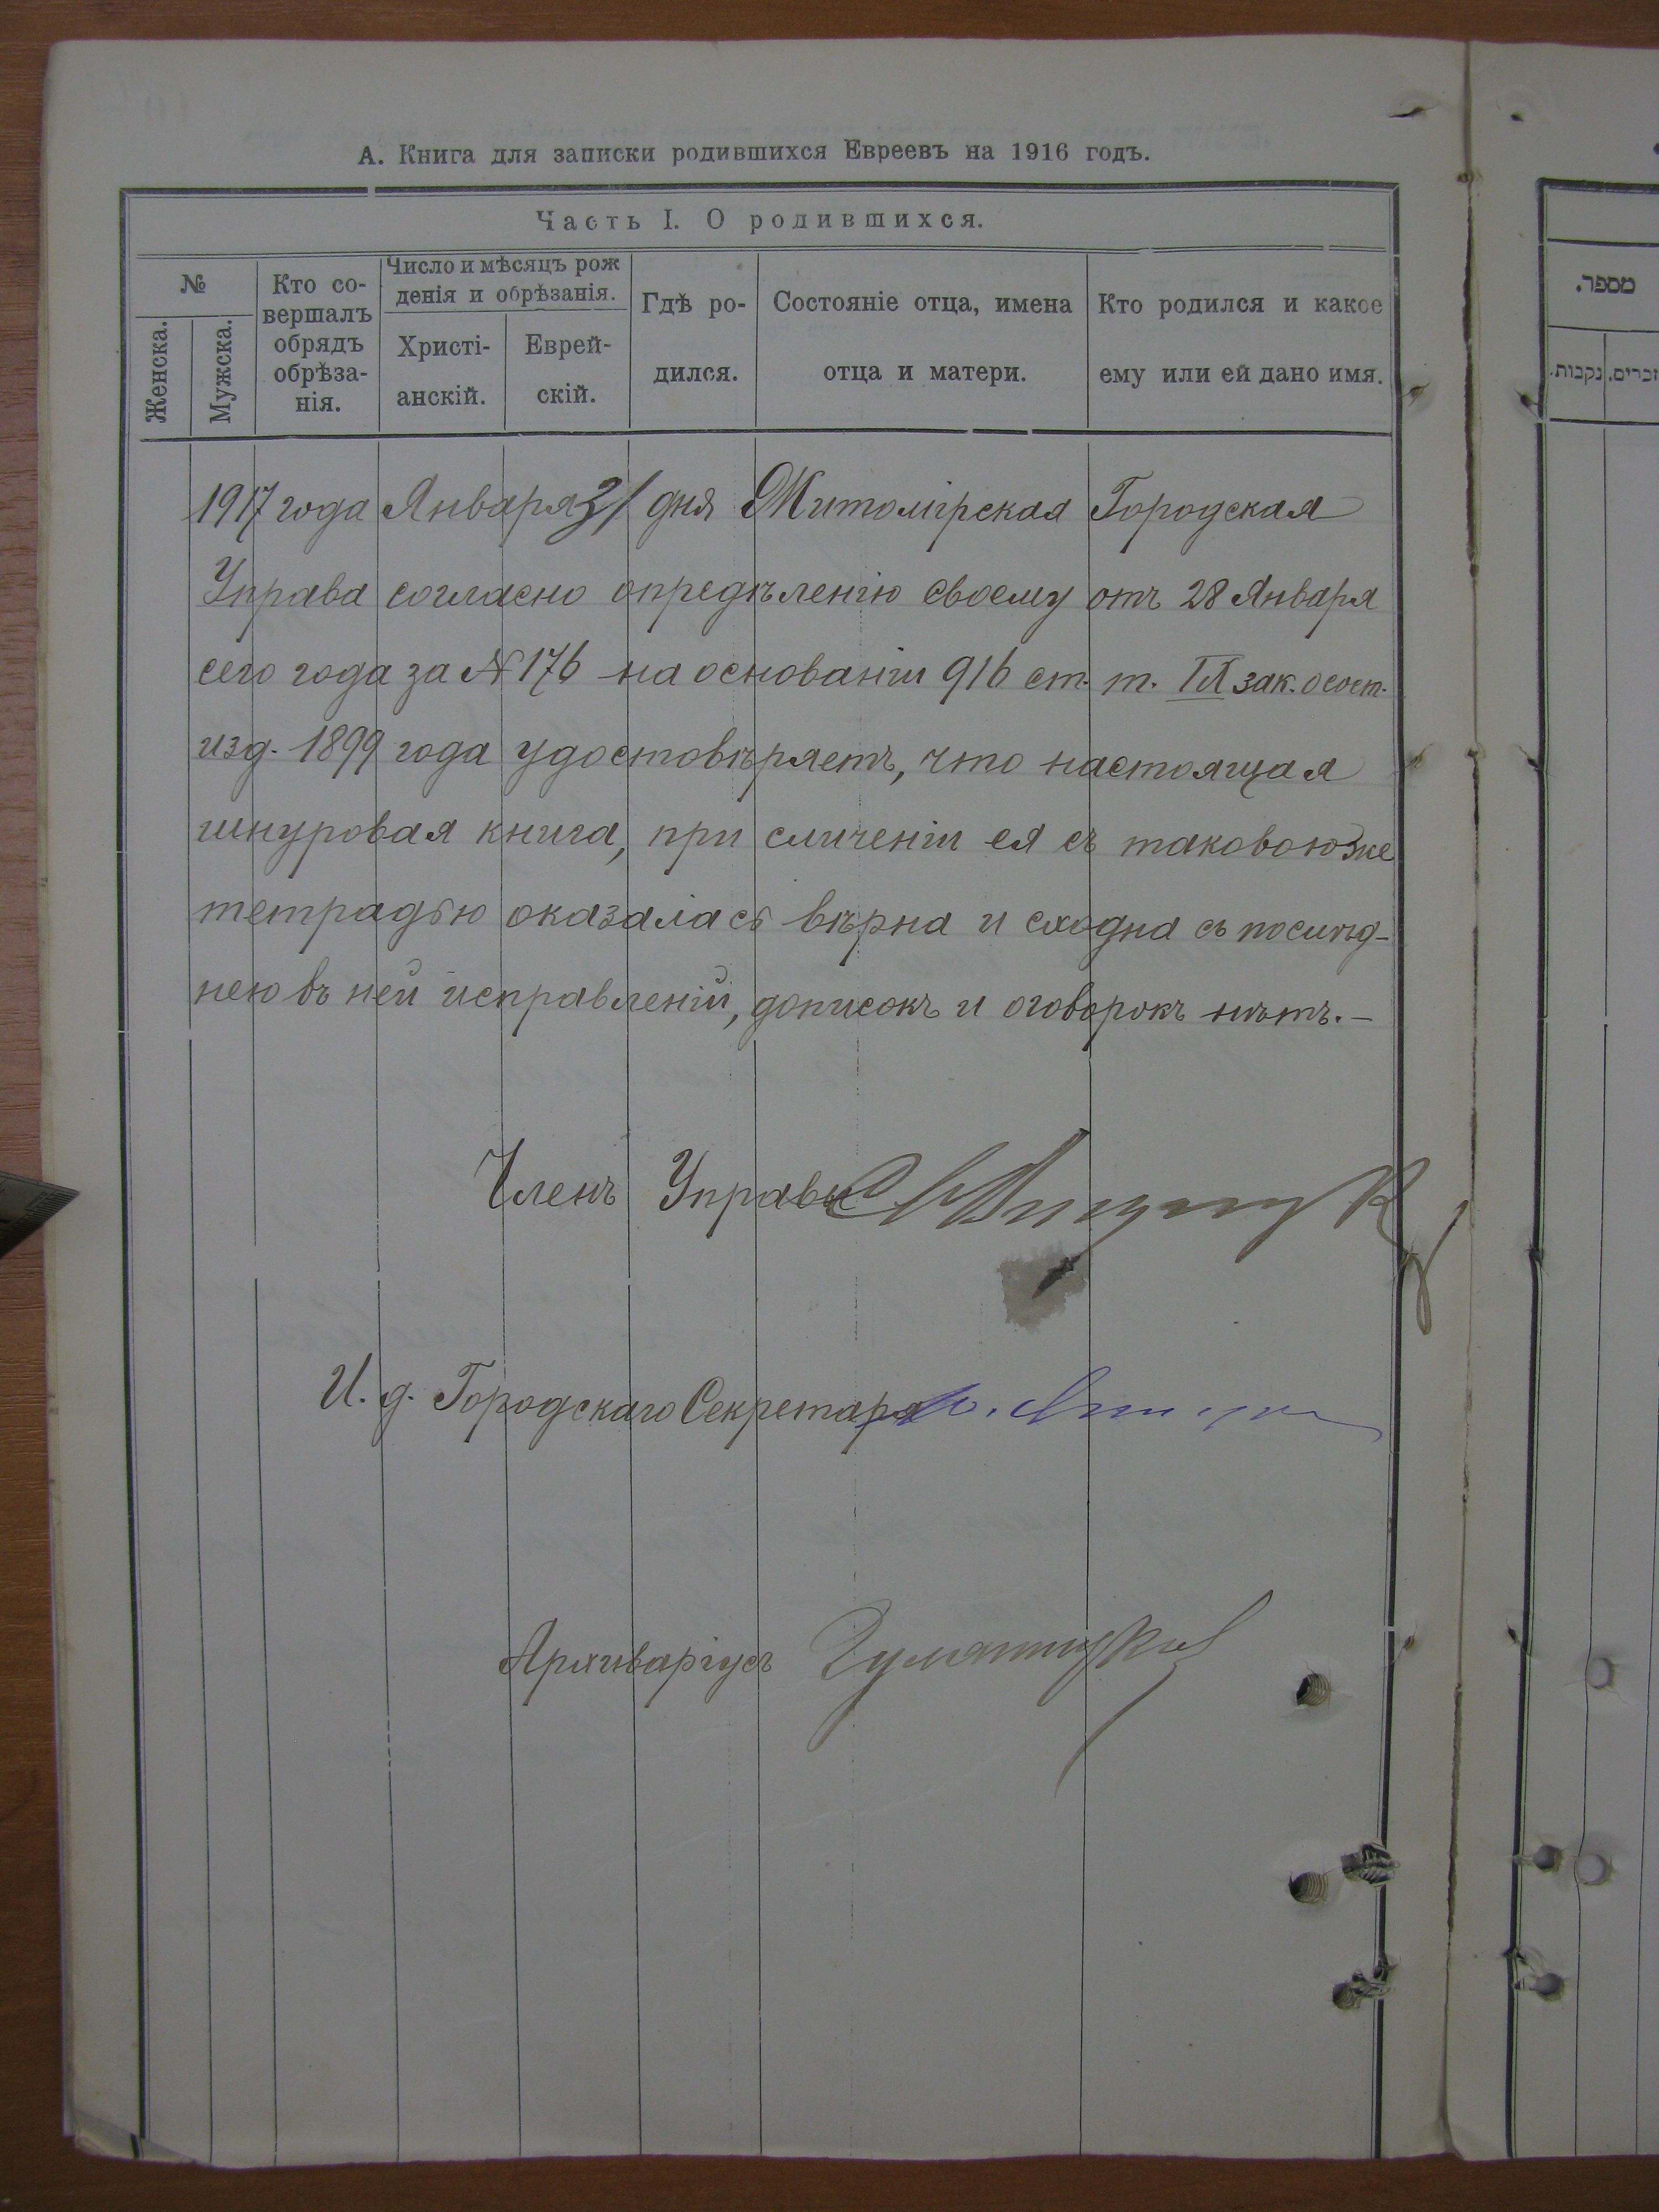 А. Книга для записки родившихся Евреевъ на 1916 годъ.
Часть I. О родившихся.
№
Женска.
Мужска.
Кто со-
вершалъ
обрядъ
обрѣза-
нія.
Число и мѣсяцъ рож
денія и обрѣзанія.
Христі-
анскій.
Еврей-
скій.
Гдѣ ро-
дился.
Состояніе отца, имена
отца и матери.
Кто родился и какое
ему или ей дано имя.
1917 года Января 31 дня Житомірская Городская
Управа согласно опредѣленію своему отъ 28 Января
сего года за № 176 на основаніи 916 ст. т. IX зак. о сост.
изд. 1899 года удостовѣряетъ, что настоящая
шнуровая книга, при сличеніи ея съ таковою же
тетрадью оказалась вѣрна и сходна съ послѣд-
нею въ ней исправленій, дописокъ и оговорокъ нѣтъ.—
Членъ Управы
И. д. Городскаго Секретаря
Архиваріусъ
מספר.
זכרים.
נקבות.